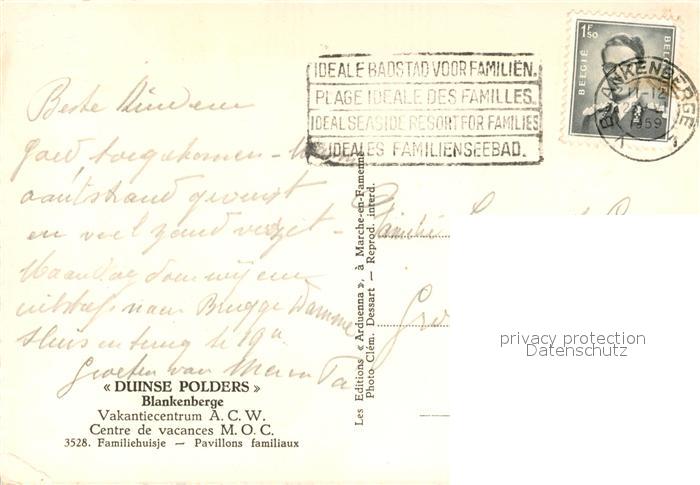 IDEALE BADSTAD VOOR FAMILIËN.
PLAGE IDEALE DES FAMILLES.
IDEAL SEASIDE RESORT FOR FAMILIES
IDEALES FAMILIENSEEBAD.
1F50
BELGIË
BELGIQUE
BLANKENBERGE
11-12
1959
Beste
goed toegekomen -
aan't strand geweest
en veel zand
Maandag doen wij een
uitstap naar Brugge Damme
Sluis en terug te 19u
Groeten van Ma en Pa
« DUINSE POLDERS »
Blankenberge
Vakantiecentrum A. C. W.
Centre de vacances M. O. C.
3528. Familiehuisje — Pavillons familiaux
Les Editions « Arduenna », à Marche-en-Famenne
Photo Clém. Dessart — Reprod. interd.
Familie
privacy protection
Datenschutz